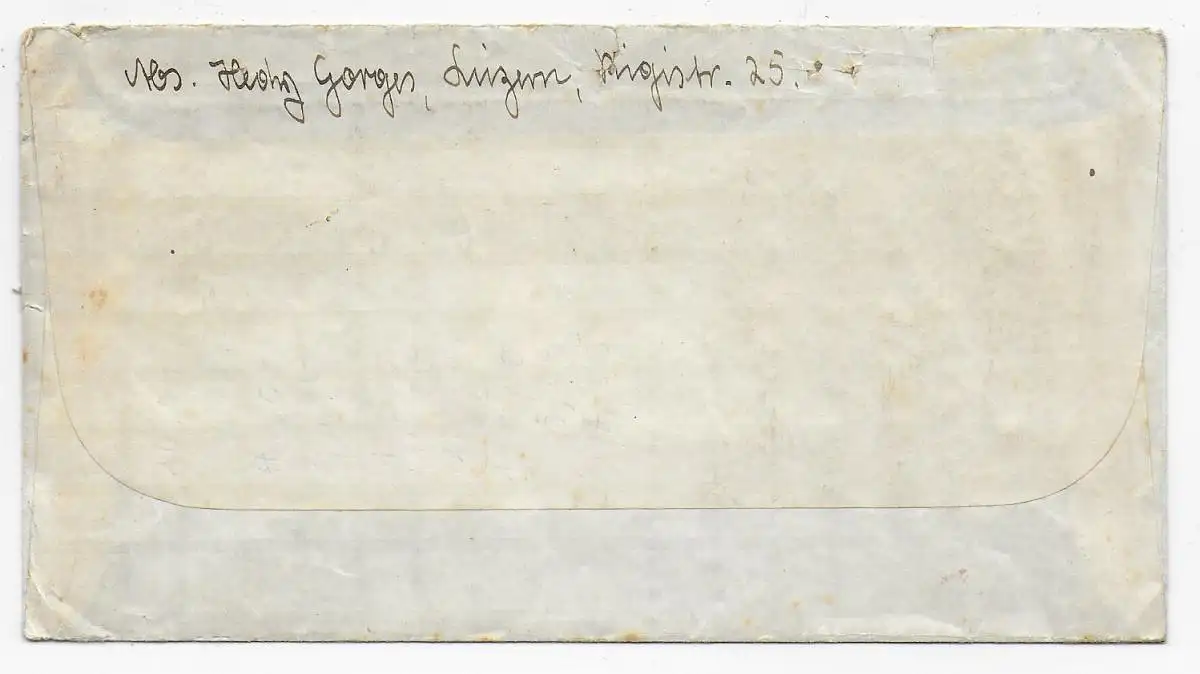 Abs. Hedy Gorges, Luzern, Rigistr. 25.